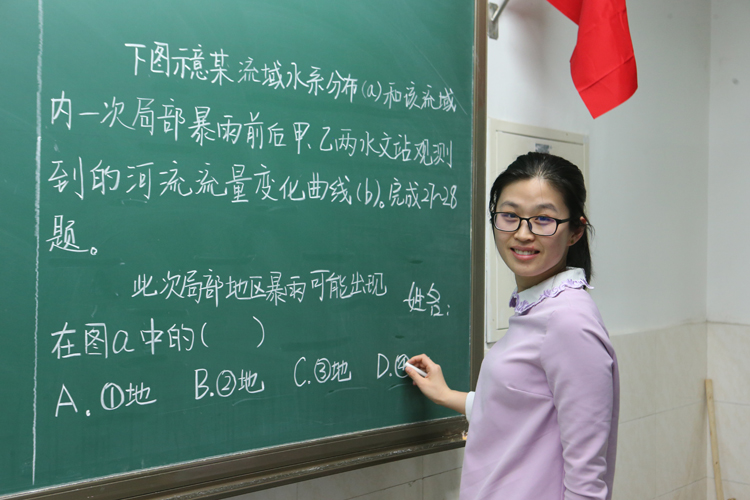 下图示意某流域水系分布(a)和该流域
内一次局部暴雨前后甲、乙两水文站观测
到的河流流量变化曲线(b)。完成27~28
题。
此次局部地区暴雨可能出现
姓名:
在图a中的( )
A.①地 B.②地 C.③地 D.④